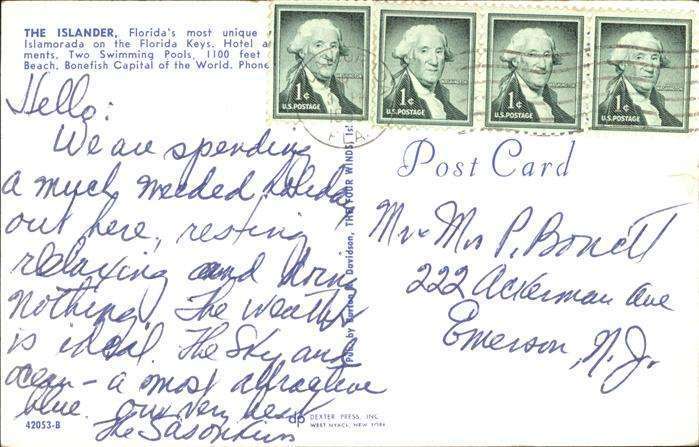 THE ISLANDER, Florida's most unique
Islamorada on the Florida Keys. Hotel
ments, Two Swimming Pools, 1100 feet
Beach, Bonefish Capital of the World. Phone
1¢
U.S. POSTAGE
WASHINGTON
1¢
U.S. POSTAGE
WASHINGTON
1¢
U.S. POSTAGE
WASHINGTON
1¢
U.S. POSTAGE
Post Card
Hello:
We are spending
a much needed holiday
out here, resting
relaxing and doing
nothing. The weather
is ideal. The sky and
ocean - a most attractive
blue. Our very best
The
Pub. by Davidson, THE FOUR WINDS,
Mr & Mrs P. Bonett
222 Ackerman Ave
Emerson, N.J.
42053-B
dp DEXTER PRESS, INC.
WEST NYACK, NEW YORK